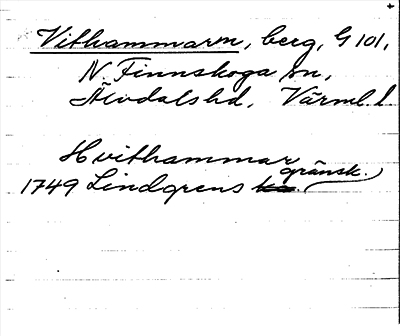 Vithammarn, berg, G 101,
N. Finnskoga sn,
Älvdals hd, Värml. l.
Hvithammar
1749 Lindgrens gränsk.